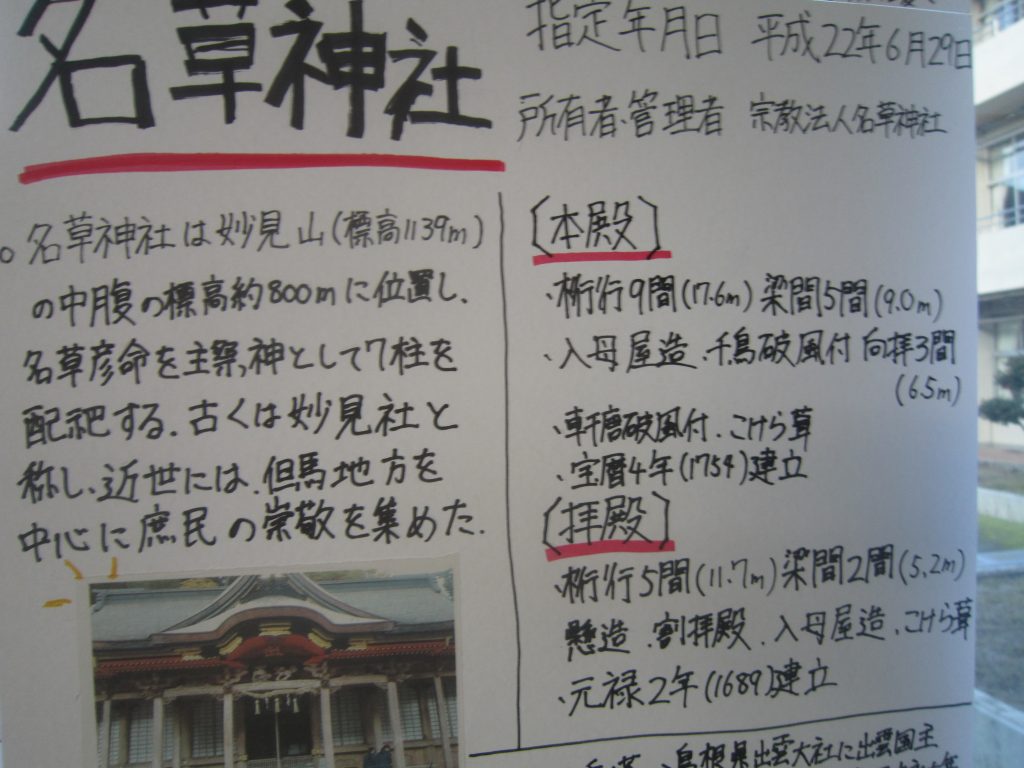 名草神社
指定年月日 平成22年6月29日
所有者・管理者 宗教法人名草神社
○ 名草神社は妙見山(標高1139m)
の中腹の標高約800mに位置し、
名草彦命を主祭神として7柱を
配祀する。古くは妙見社と
称し、近世には、但馬地方を
中心に庶民の崇敬を集めた。
〔本殿〕
・桁行9間(17.6m) 梁間5間(9.0m)
・入母屋造、千鳥破風付 向拝3間
(6.5m)
・軒唐破風付、こけら葺
・宝暦4年(1754)建立
〔拝殿〕
・桁行5間(11.7m) 梁間2間(5.2m)
懸造、割拝殿、入母屋造、こけら葺
・元禄2年(1689)建立
島根県出雲大社に出雲国主